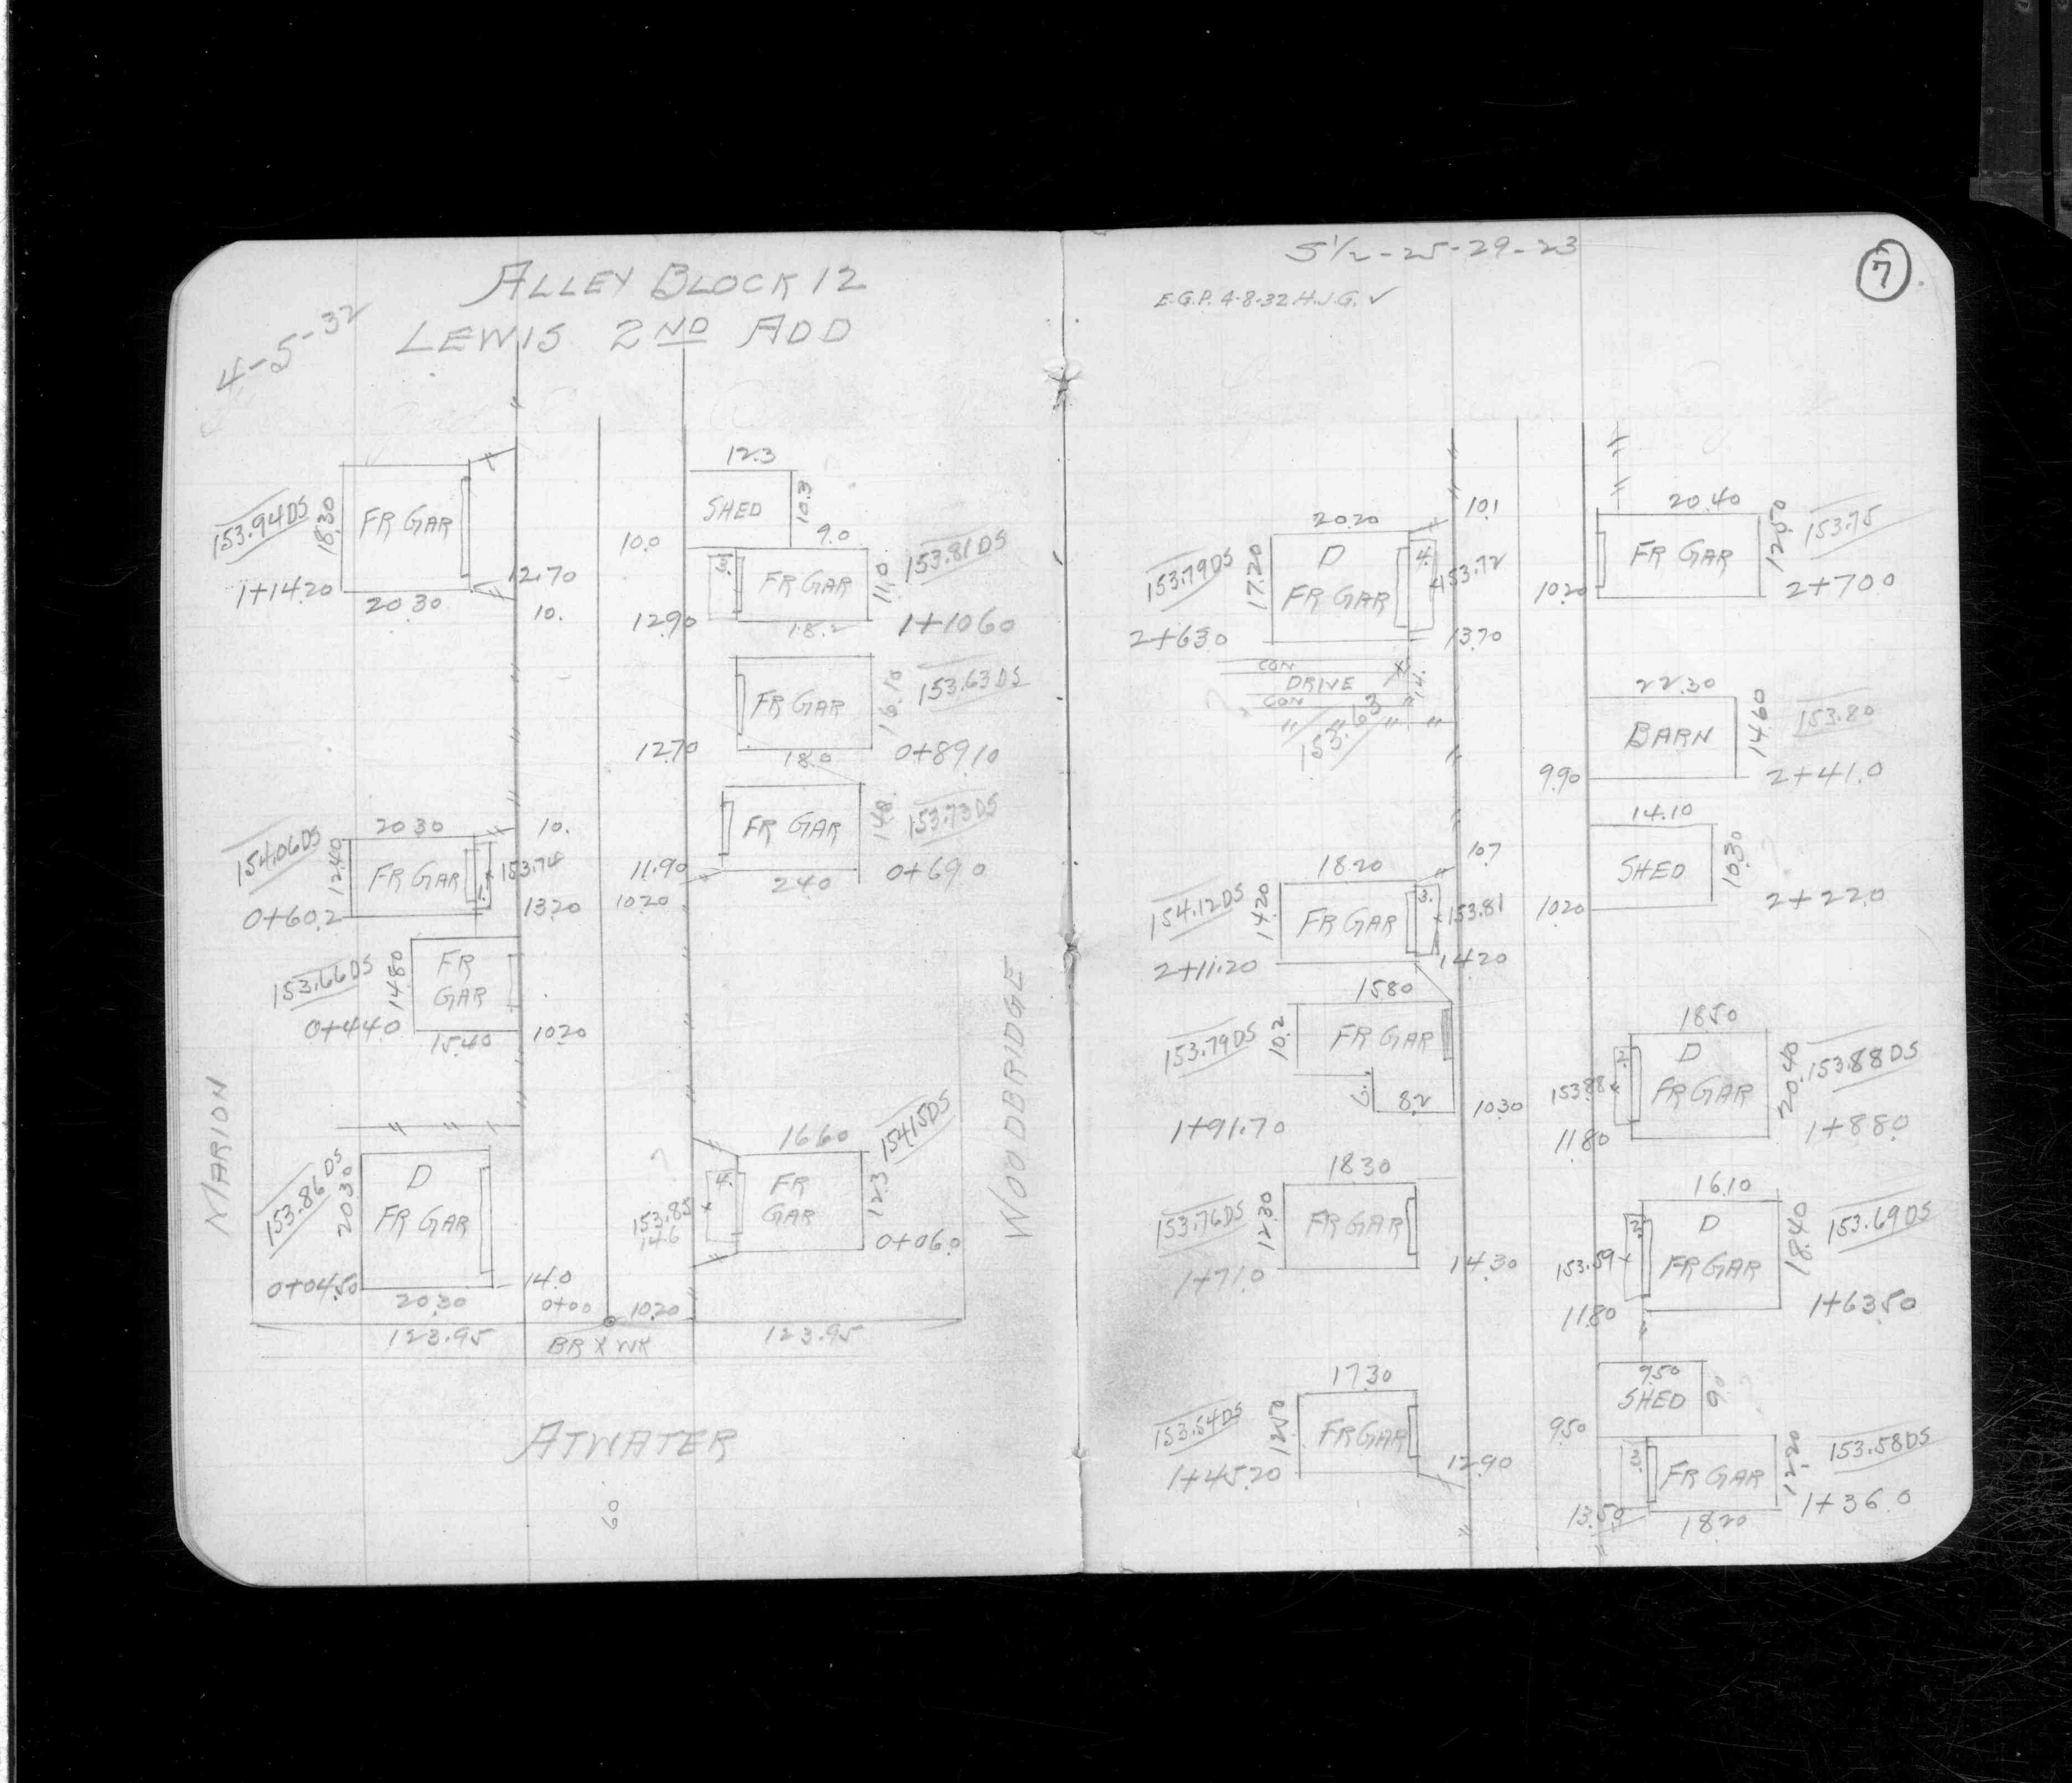 ALLEY BLOCK 12
LEWIS 2ND ADD
4-5-32
153.94 DS
18.30
FR GAR
1+14.20
20.30
12.70
10.
12.3
SHED
10.3
10.0
9.0
3.
FR GAR
11.0
153.81 DS
12.90
18.2
1+10.60
FR GAR
16.10
153.63 DS
12.70
18.0
0+89.10
FR GAR
14.8
153.73 DS
11.90
24.0
0+69.0
10.20
154.06 DS
20.30
10.
12.40
FR GAR
1.
153.74
0+60.2
13.20
153.66 DS
14.80
FR
GAR
0+44.0
15.40
10.20
MARION
WOODBRIDGE
153.86 DS
20.30
D
FR GAR
0+04.50
20.30
14.0
16.60
154.15 DS
4.
FR
GAR
12.3
153.85
14.6
0+06.0
0+00
10.20
123.95
BR X WK
123.95
ATWATER
60
S 1/2 - 25-29-23
7
E.G.P. 4-8-32 H.J.G. ✓
20.20
10.1
153.79 DS
17.20
D
FR GAR
4.
153.72
2+63.0
13.70
CON
DRIVE
CON
14.
153.63
20.40
FR GAR
12.50
153.75
10.20
2+70.0
22.30
BARN
14.60
153.80
9.90
2+41.0
14.10
SHED
10.30
10.20
2+22.0
18.20
10.7
154.12 DS
14.20
FR GAR
3.
153.81
2+11.20
14.20
15.80
153.79 DS
10.2
FR GAR
6.
8.2
10.30
1+91.70
18.50
2.
D
FR GAR
20.40
153.88 DS
153.88
11.80
1+88.0
18.30
153.76 DS
12.30
FR GAR
1+71.0
14.30
16.10
2.
D
FR GAR
18.40
153.69 DS
153.59
11.80
1+63.50
17.30
153.54 DS
12.50
FR GAR
1+45.20
12.90
9.50
SHED
9.0
9.50
3.
FR GAR
12.20
153.58 DS
13.50
18.20
1+36.0